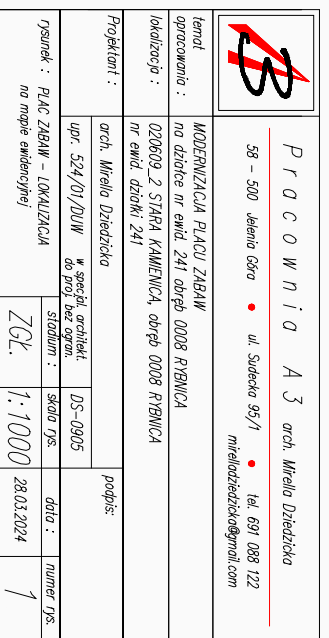 Pracownia A3 arch. Mirella Dziedzicka
58 - 500 Jelenia Góra • ul. Sudecka 95/1 • tel. 691 088 122
mirelladziedzicka@gmail.com
temat
opracowania :
MODERNIZACJA PLACU ZABAW
na działce nr ewid. 241 obręb 0008 RYBNICA
lokalizacja :
020609_2 STARA KAMIENICA, obręb 0008 RYBNICA
nr ewid. działki 241
Projektant :
arch. Mirella Dziedzicka
podpis:
upr. 524/01/DUW
w specjal. architekt.
do proj. bez ogran.
DS-0905
rysunek : PLAC ZABAW - LOKALIZACJA
na mapie ewidencyjnej
stadium :
ZGŁ.
skala rys.
1:1000
data :
28.03.2024
numer rys.
1